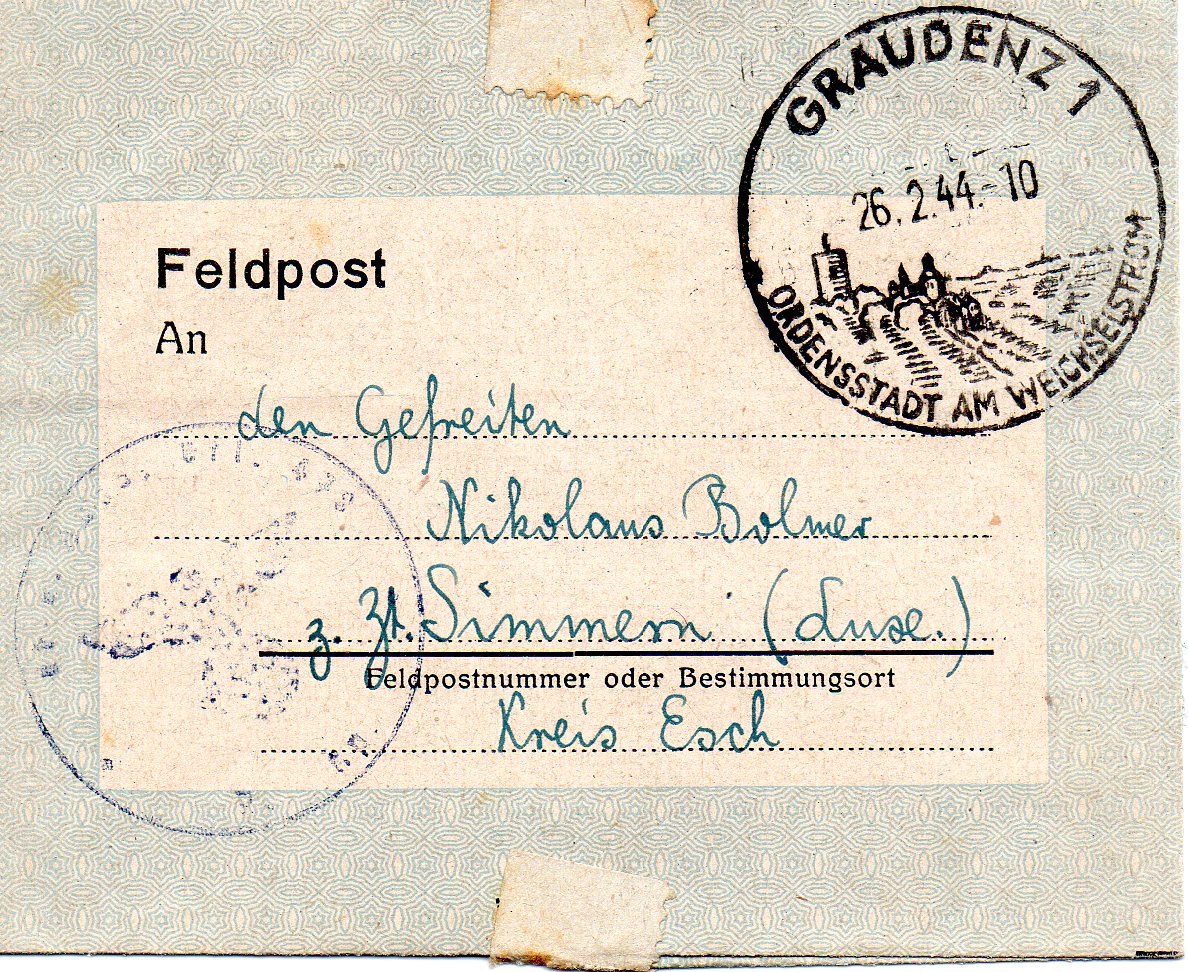 GRAUDENZ 1
26.2.44.-10
ORDENSSTADT AM WEICHSELSTROM
Feldpost
An
den Gefreiten
Nikolaus Bolmer
z. Zt. Simmern (Luxe.)
Feldpostnummer oder Bestimmungsort
Kreis Esch